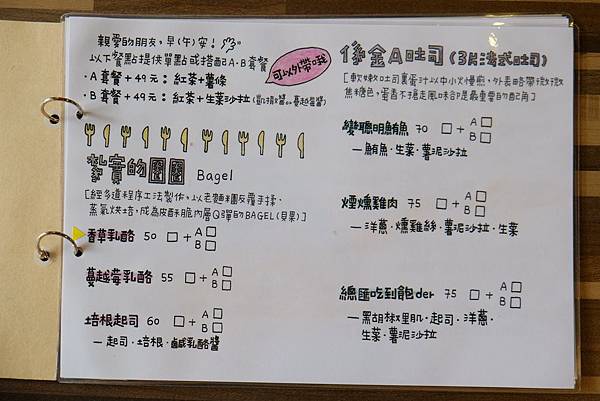 親愛的朋友，早(午)安！
以下餐點提供單點或搭配A.B套餐
·A套餐+49元：紅茶+薯條
·B套餐+49元：紅茶+生菜沙拉(凱撒醬or蔓越莓醬)
可以外帶哦
紮實的圈圈 Bagel
[經多道程序工法製作，以老麵糰反覆手揉、
蒸氣烘培，成為皮酥脆內層Q彈的BAGEL(貝果)]
香草乳酪 50 □+A□
B□
蔓越莓乳酪 55 □+A□
B□
培根起司 60 □+A□
B□
—起司·培根·鹹乳酪醬
係金A吐司(3片湯式吐司)
[軟嫩吐司裹蛋汁以中小火慢煎，外表略帶微微
焦糖色，蛋香不搶走風味卻是最重要的配角]
變聰明鮪魚 70 □+A□
B□
—鮪魚·生菜·薯泥沙拉
煙燻雞肉 75 □+A□
B□
—洋蔥·燻雞絲·薯泥沙拉·生菜
總匯吃到飽der 75 □+A□
B□
—黑胡椒里肌·起司·洋蔥·
生菜·薯泥沙拉